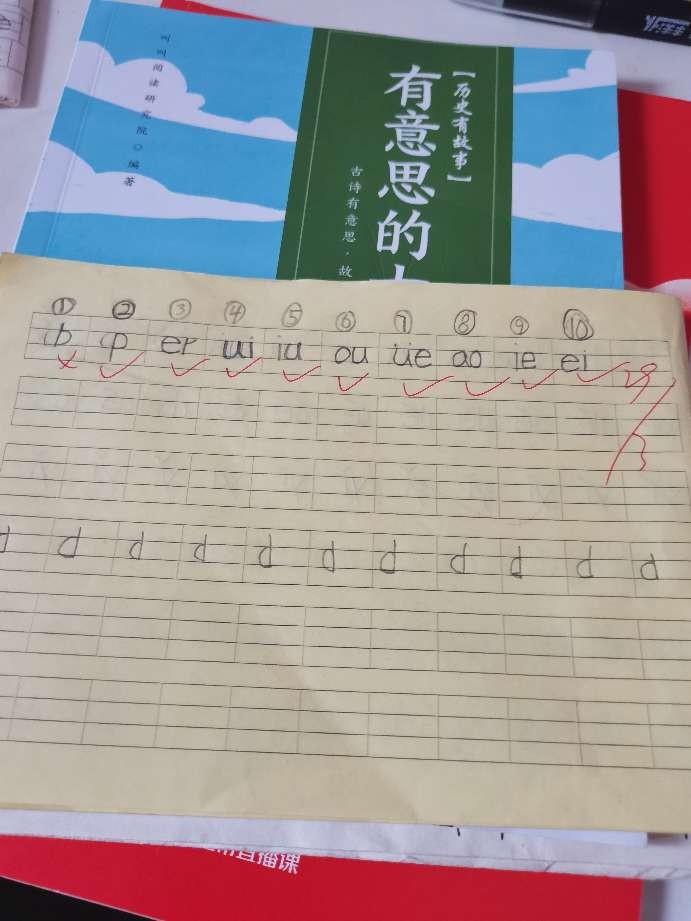 叫叫阅读研究院◎编著
【历史有故事】
有意思的
古诗有意思·故
① ② ③ ④ ⑤ ⑥ ⑦ ⑧ ⑨ ⑩
p er ui iu ou üe ao ie ei
d d d d d d d d d d d
直播课